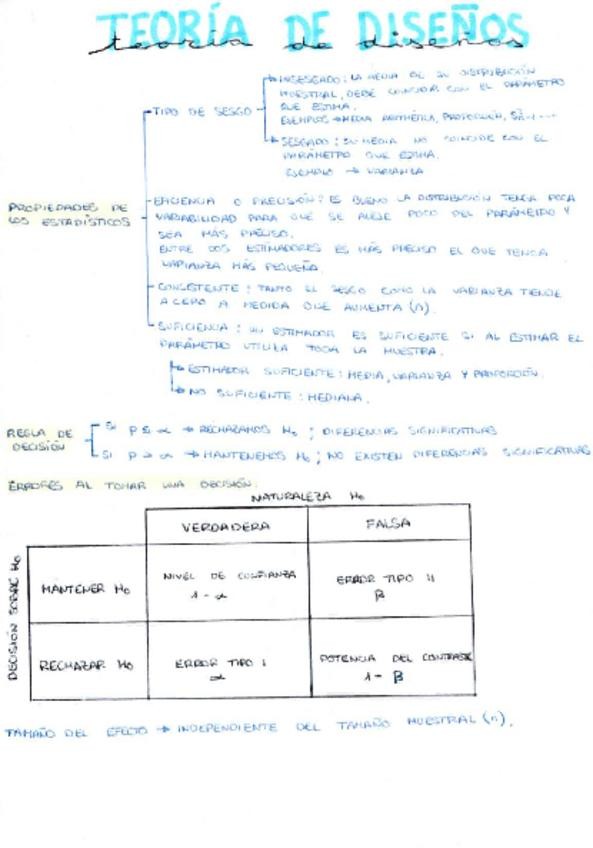 TEORÍA DE DISEÑOS
teoría de diseños
INSESGADO: LA MEDIA DE SU DISTRIBUCIÓN
MUESTRAL, DEBE COINCIDIR CON EL PARÁMETRO
QUE ESTIMA.
EJEMPLOS → MEDIA ARITMÉTICA, PROPORCIÓN,
TIPO DE SESGO
SESGADO: SU MEDIA NO COINCIDE CON EL
PARÁMETRO QUE ESTIMA.
EJEMPLO → VARIANZA
PROPIEDADES DE
LOS ESTADÍSTICOS
EFICIENCIA O PRECISIÓN: ES BUENO LA DISTRIBUCIÓN TENGA POCA
VARIABILIDAD PARA QUE SE ALEJE POCO DEL PARÁMETRO Y
SEA MÁS PRECISO.
ENTRE DOS ESTIMADORES ES MÁS PRECISO EL QUE TENGA
VARIANZA MÁS PEQUEÑA.
CONSISTENTE: TANTO EL SESGO COMO LA VARIANZA TIENDE
A CERO A MEDIDA QUE AUMENTA (n).
SUFICIENCIA: UN ESTIMADOR ES SUFICIENTE SI AL ESTIMAR EL
PARÁMETRO UTILIZA TODA LA MUESTRA.
ESTIMADOR SUFICIENTE: MEDIA, VARIANZA Y PROPORCIÓN.
NO SUFICIENTE: MEDIANA.
REGLA DE
DECISIÓN
SI P ≤ α → RECHAZAMOS H₀; DIFERENCIAS SIGNIFICATIVAS
SI P > α → MANTENEMOS H₀; NO EXISTEN DIFERENCIAS SIGNIFICATIVAS
ERRORES AL TOMAR UNA DECISIÓN:
NATURALEZA H₀
VERDADERA FALSA
DECISIÓN SOBRE H₀
MANTENER H₀ NIVEL DE CONFIANZA 1 - α ERROR TIPO II β
RECHAZAR H₀ ERROR TIPO I α POTENCIA DEL CONTRASTE 1 - β
TAMAÑO DEL EFECTO → INDEPENDIENTE DEL TAMAÑO MUESTRAL (n).